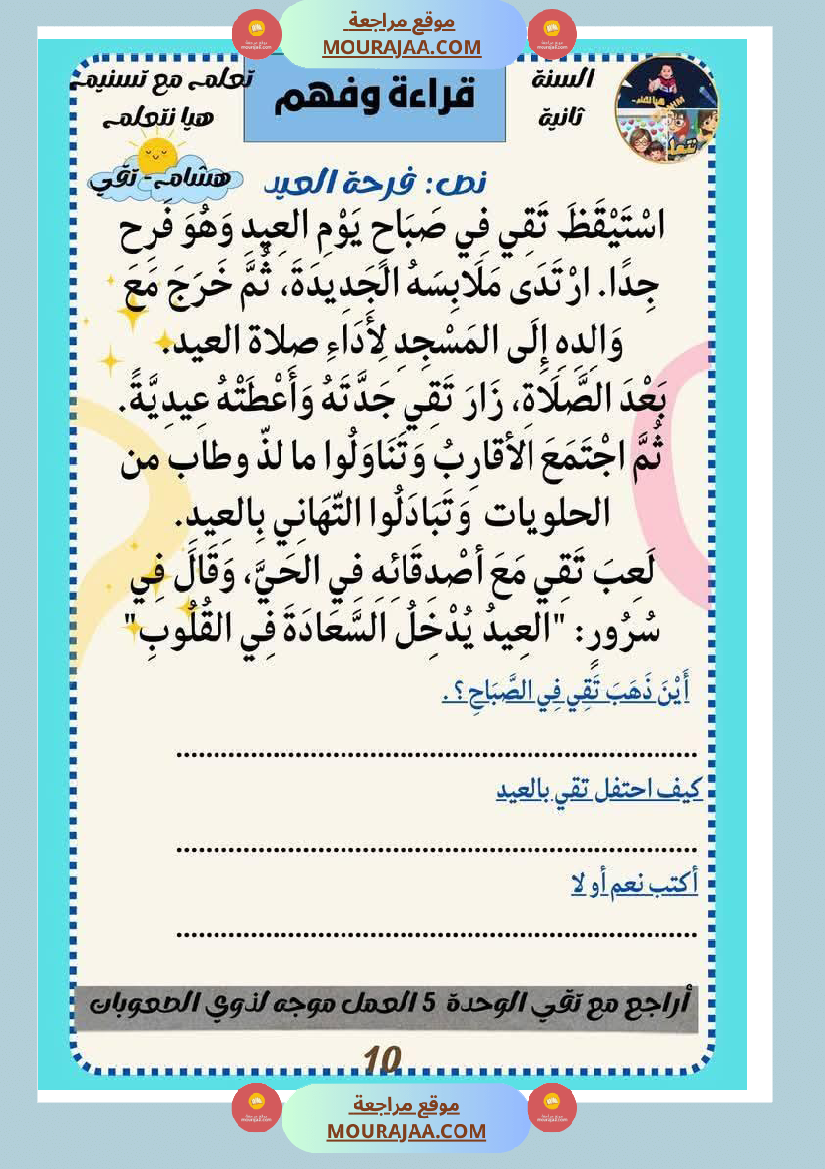 موقع مراجعة
MOURAJAA.COM
السنة
ثانية
قراءة وفهم
تعلم مع تسنيم
هيا نتعلم
هشام - تقي
نص: فرحة العيد
اسْتَيْقَظَ تَقِي فِي صَبَاحِ يَوْمِ العِيدِ وَهُوَ فَرِح
جِدًا. ارْتَدَى مَلَابِسَهُ الجَدِيدَةَ، ثُمَّ خَرَجَ مَعَ
وَالِدِهِ إِلَى المَسْجِدِ لِأَدَاءِ صلاة العيد.
بَعْدَ الصَّلَاةِ، زَارَ تَقِي جَدَّتَهُ وَأَعْطَتْهُ عِيدِيَّةً.
ثُمَّ اجْتَمَعَ الأقارِبُ وَتَنَاوَلُوا ما لذّ وطاب من
الحلويات وَتَبَادَلُوا التّهَانِي بِالعِيدِ.
لَعِبَ تَقِي مَعَ أصْدِقَائِهِ فِي الحَيِّ، وَقَالَ فِي
سُرُورٍ: "العِيدُ يُدْخِلُ السَّعَادَةَ فِي القُلُوبِ"
أَيْنَ ذَهَبَ تَقِي فِي الصَّبَاحِ؟ .
كيف احتفل تقي بالعيد
أكتب نعم أو لا
أراجع مع تقي الوحدة 5 العمل موجه لذوي الصعوبات
10
موقع مراجعة
MOURAJAA.COM